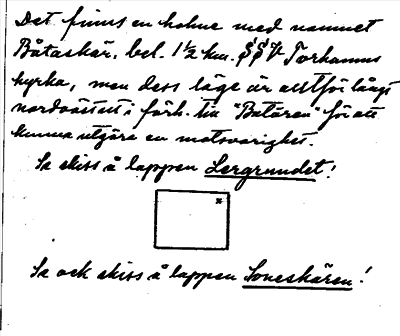 Det finns en holme med namnet
Båtaskär, bel. 1 1/2 km. SSV Torhamns
kyrka, men dess läge är alltför långt
nordväst i förh. till "Batären" för att
kunna utgöra en motsvarighet.
Se skiss å lappen Lergrundet!
Se ock skiss å lappen Soneskären!